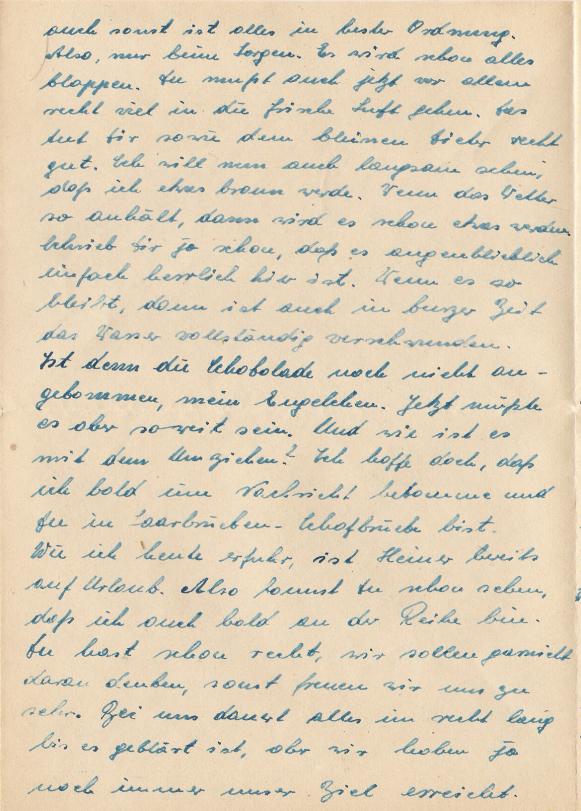 auch sonst ist alles in bester Ordnung.
Also, nur keine Sorgen. Es wird schon alles
klappen. Du mußt auch jetzt vor allem
recht viel in die frische Luft gehen. Das
tut Dir sowie dem kleinen Dieter recht
gut. Ich will nun auch langsam sehen,
daß ich etwas braun werde. Wenn das Wetter
so anhält, dann wird es schon etwas werden.
Schrieb Dir ja schon, daß es augenblicklich
einfach herrlich hier ist. Wenn es so
bleibt, dann ist auch in kurzer Zeit
das Wasser vollständig verschwunden.
Ist denn die Schokolade noch nicht an-
gekommen, mein Engelchen. Jetzt müßte
es aber soweit sein. Und wie ist es
mit dem Umziehen? Ich hoffe doch, daß
ich bald eine Nachricht bekomme und
Du in Saarbrücken-Schafbrücke bist.
Wie ich heute erfuhr, ist Heiner bereits
auf Urlaub. Also kannst Du schon sehen,
daß ich auch bald an der Reihe bin.
Du hast schon recht, wir sollen garnicht
daran denken, sonst freuen wir uns zu
sehr. Bei uns dauert alles im recht lang
bis es geklärt ist, aber wir haben ja
noch immer unser Ziel erreicht.